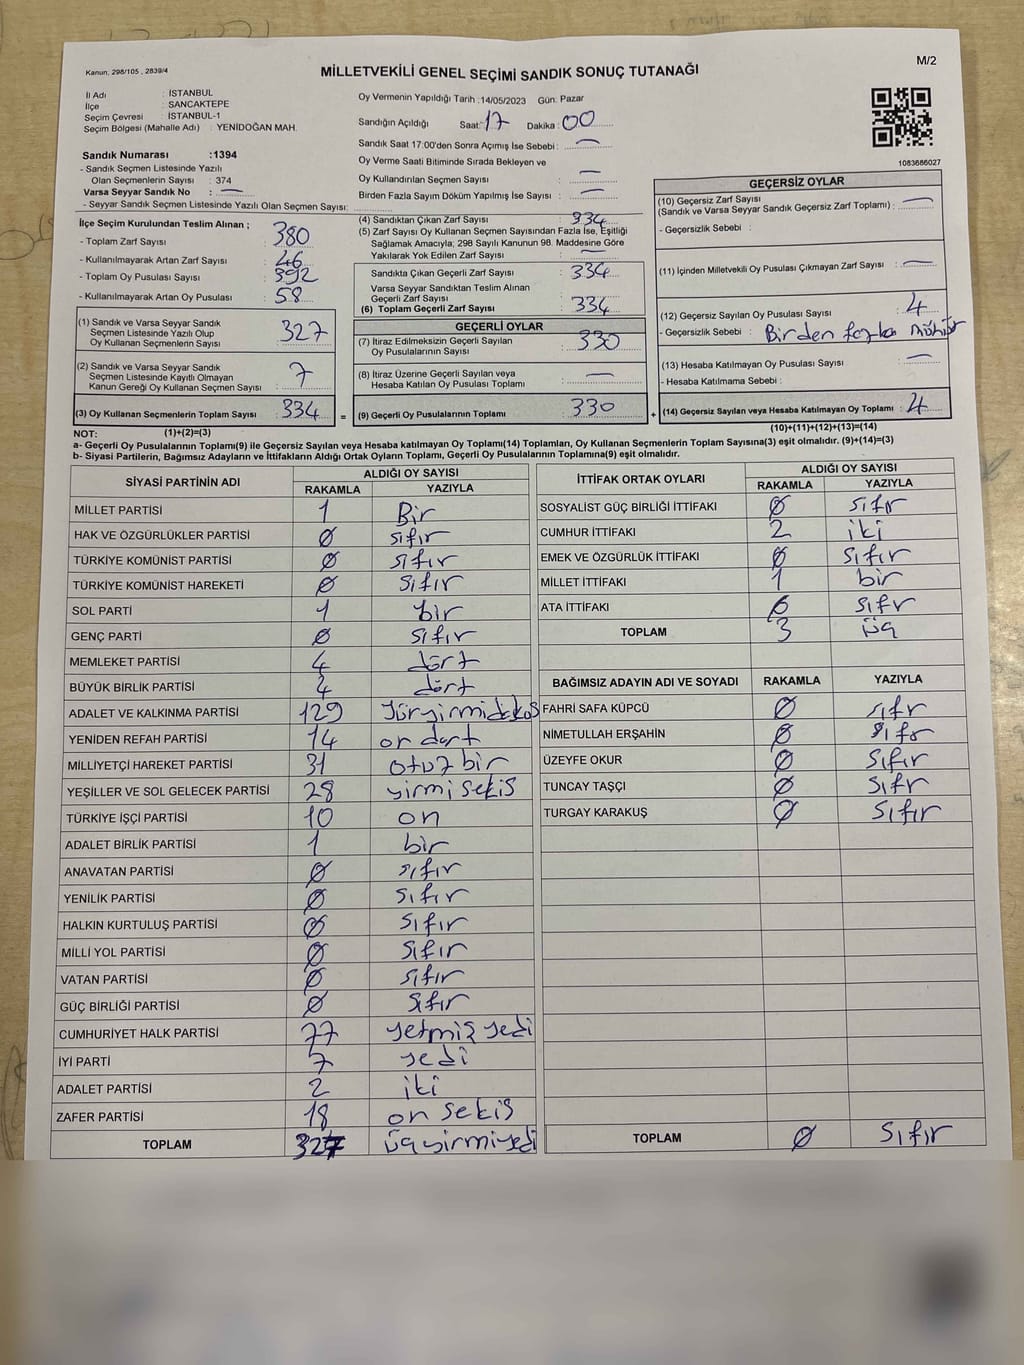 Kanun, 298/105 , 2839/4
M/2
MİLLETVEKİLİ GENEL SEÇİMİ SANDIK SONUÇ TUTANAĞI
İl Adı : İSTANBUL
İlçe : SANCAKTEPE
Seçim Çevresi : İSTANBUL-1
Seçim Bölgesi (Mahalle Adı) : YENİDOĞAN MAH.
Oy Vermenin Yapıldığı Tarih :14/05/2023 Gün: Pazar
Sandığın Açıldığı Saat: 17 Dakika : 00
Sandık Saat 17:00'den Sonra Açımış İse Sebebi : —
Oy Verme Saati Bitiminde Sırada Bekleyen ve
Oy Kullandırılan Seçmen Sayısı —
Birden Fazla Sayım Döküm Yapılmış İse Sayısı : —
1083686027
Sandık Numarası :1394
- Sandık Seçmen Listesinde Yazılı
Olan Seçmenlerin Sayısı : 374
Varsa Seyyar Sandık No : —
- Seyyar Seçmen Listesinde Yazılı Olan Seçmen Sayısı:
İlçe Seçim Kurulundan Teslim Alınan ;
- Toplam Zarf Sayısı : 380
- Kullanılmayarak Artan Zarf Sayısı : 46
- Toplam Oy Pusulası Sayısı : 392
- Kullanılmayarak Artan Oy Pusulası : 58
(1) Sandık ve Varsa Seyyar Sandık
Seçmen Listesinde Yazılı Olup
Oy Kullanan Seçmenlerin Sayısı : 327
(2) Sandık ve Varsa Seyyar Sandık
Seçmen Listesinde Kayıtlı Olmayan
Kanun Gereği Oy Kullanan Seçmen Sayısı : 7
(3) Oy Kullanan Seçmenlerin Toplam Sayısı : 334 =
(4) Sandıktan Çıkan Zarf Sayısı : 334
(5) Zarf Sayısı Oy Kullanan Seçmen Sayısından Fazla İse, Eşitliği
Sağlamak Amacıyla; 298 Sayılı Kanunun 98. Maddesine Göre
Yakılarak Yok Edilen Zarf Sayısı : —
Sandıkta Çıkan Geçerli Zarf Sayısı : 334
Varsa Seyyar Sandıktan Teslim Alınan
Geçerli Zarf Sayısı
(6) Toplam Geçerli Zarf Sayısı : 334
GEÇERLİ OYLAR
(7) İtiraz Edilmeksizin Geçerli Sayılan
Oy Pusulalarının Sayısı : 330
(8) İtiraz Üzerine Geçerli Sayılan veya
Hesaba Katılan Oy Pusulası Toplamı : —
(9) Geçerli Oy Pusulalarının Toplamı : 330 +
GEÇERSİZ OYLAR
(10) Geçersiz Zarf Sayısı
(Sandık ve Varsa Seyyar Sandık Geçersiz Zarf Toplamı) : —
- Geçersizlik Sebebi :
(11) İçinden Milletvekili Oy Pusulası Çıkmayan Zarf Sayısı : —
(12) Geçersiz Sayılan Oy Pusulası Sayısı : 4
- Geçersizlik Sebebi : Birden fazla mühür
(13) Hesaba Katılmayan Oy Pusulası Sayısı : —
- Hesaba Katılmama Sebebi :
(14) Geçersiz Sayılan veya Hesaba Katılmayan Oy Toplamı : 4
NOT: (1)+(2)=(3) (10)+(11)+(12)+(13)=(14)
a- Geçerli Oy Pusulalarının Toplamı(9) ile Geçersiz Sayılan veya Hesaba katılmayan Oy Toplamı(14) Toplamları, Oy Kullanan Seçmenlerin Toplam Sayısına(3) eşit olmalıdır. (9)+(14)=(3)
b- Siyasi Partilerin, Bağımsız Adayların ve İttifakların Aldığı Ortak Oyların Toplamı, Geçerli Oy Pusulalarının Toplamına(9) eşit olmalıdır.
SİYASİ PARTİNİN ADI ALDIĞI OY SAYISI
RAKAMLA YAZIYLA
MİLLET PARTİSİ 1 Bir
HAK VE ÖZGÜRLÜKLER PARTİSİ 0 sıfır
TÜRKİYE KOMÜNİST PARTİSİ 0 sıfır
TÜRKİYE KOMÜNİST HAREKETİ 0 sıfır
SOL PARTİ 1 bir
GENÇ PARTİ 0 sıfır
MEMLEKET PARTİSİ 4 dört
BÜYÜK BİRLİK PARTİSİ 4 dört
ADALET VE KALKINMA PARTİSİ 129
YENİDEN REFAH PARTİSİ 14 on dört
MİLLİYETÇİ HAREKET PARTİSİ 31 otuz bir
YEŞİLLER VE SOL GELECEK PARTİSİ 28 yirmi sekis
TÜRKİYE İŞÇİ PARTİSİ 10 on
ADALET BİRLİK PARTİSİ 1 bir
ANAVATAN PARTİSİ 0 sıfır
YENİLİK PARTİSİ 0 sıfır
HALKIN KURTULUŞ PARTİSİ 0 sıfır
MİLLİ YOL PARTİSİ 0 sıfır
VATAN PARTİSİ 0 sıfır
GÜÇ BİRLİĞİ PARTİSİ 0 sıfır
CUMHURİYET HALK PARTİSİ 77 yetmiş yedi
İYİ PARTİ 7 yedi
ADALET PARTİSİ 2 iki
ZAFER PARTİSİ 18 on sekis
TOPLAM 327 üçyirmiyedi
İTTİFAK ORTAK OYLARI ALDIĞI OY SAYISI
RAKAMLA YAZIYLA
SOSYALİST GÜÇ BİRLİĞİ İTTİFAKI 0 sıfr
CUMHUR İTTİFAKI 2 iki
EMEK VE ÖZGÜRLÜK İTTİFAKI 0 sıfır
MİLLET İTTİFAKI 1 bir
ATA İTTİFAKI 0 sıfr
TOPLAM 3 üç
BAĞIMSIZ ADAYIN ADI VE SOYADI RAKAMLA YAZIYLA
FAHRİ SAFA KÜPCÜ 0 sıfr
NİMETULLAH ERŞAHİN 0 sıfr
ÜZEYFE OKUR 0 sıfır
TUNCAY TAŞÇI 0 sıfr
TURGAY KARAKUŞ 0 sıfır
TOPLAM 0 sıfır